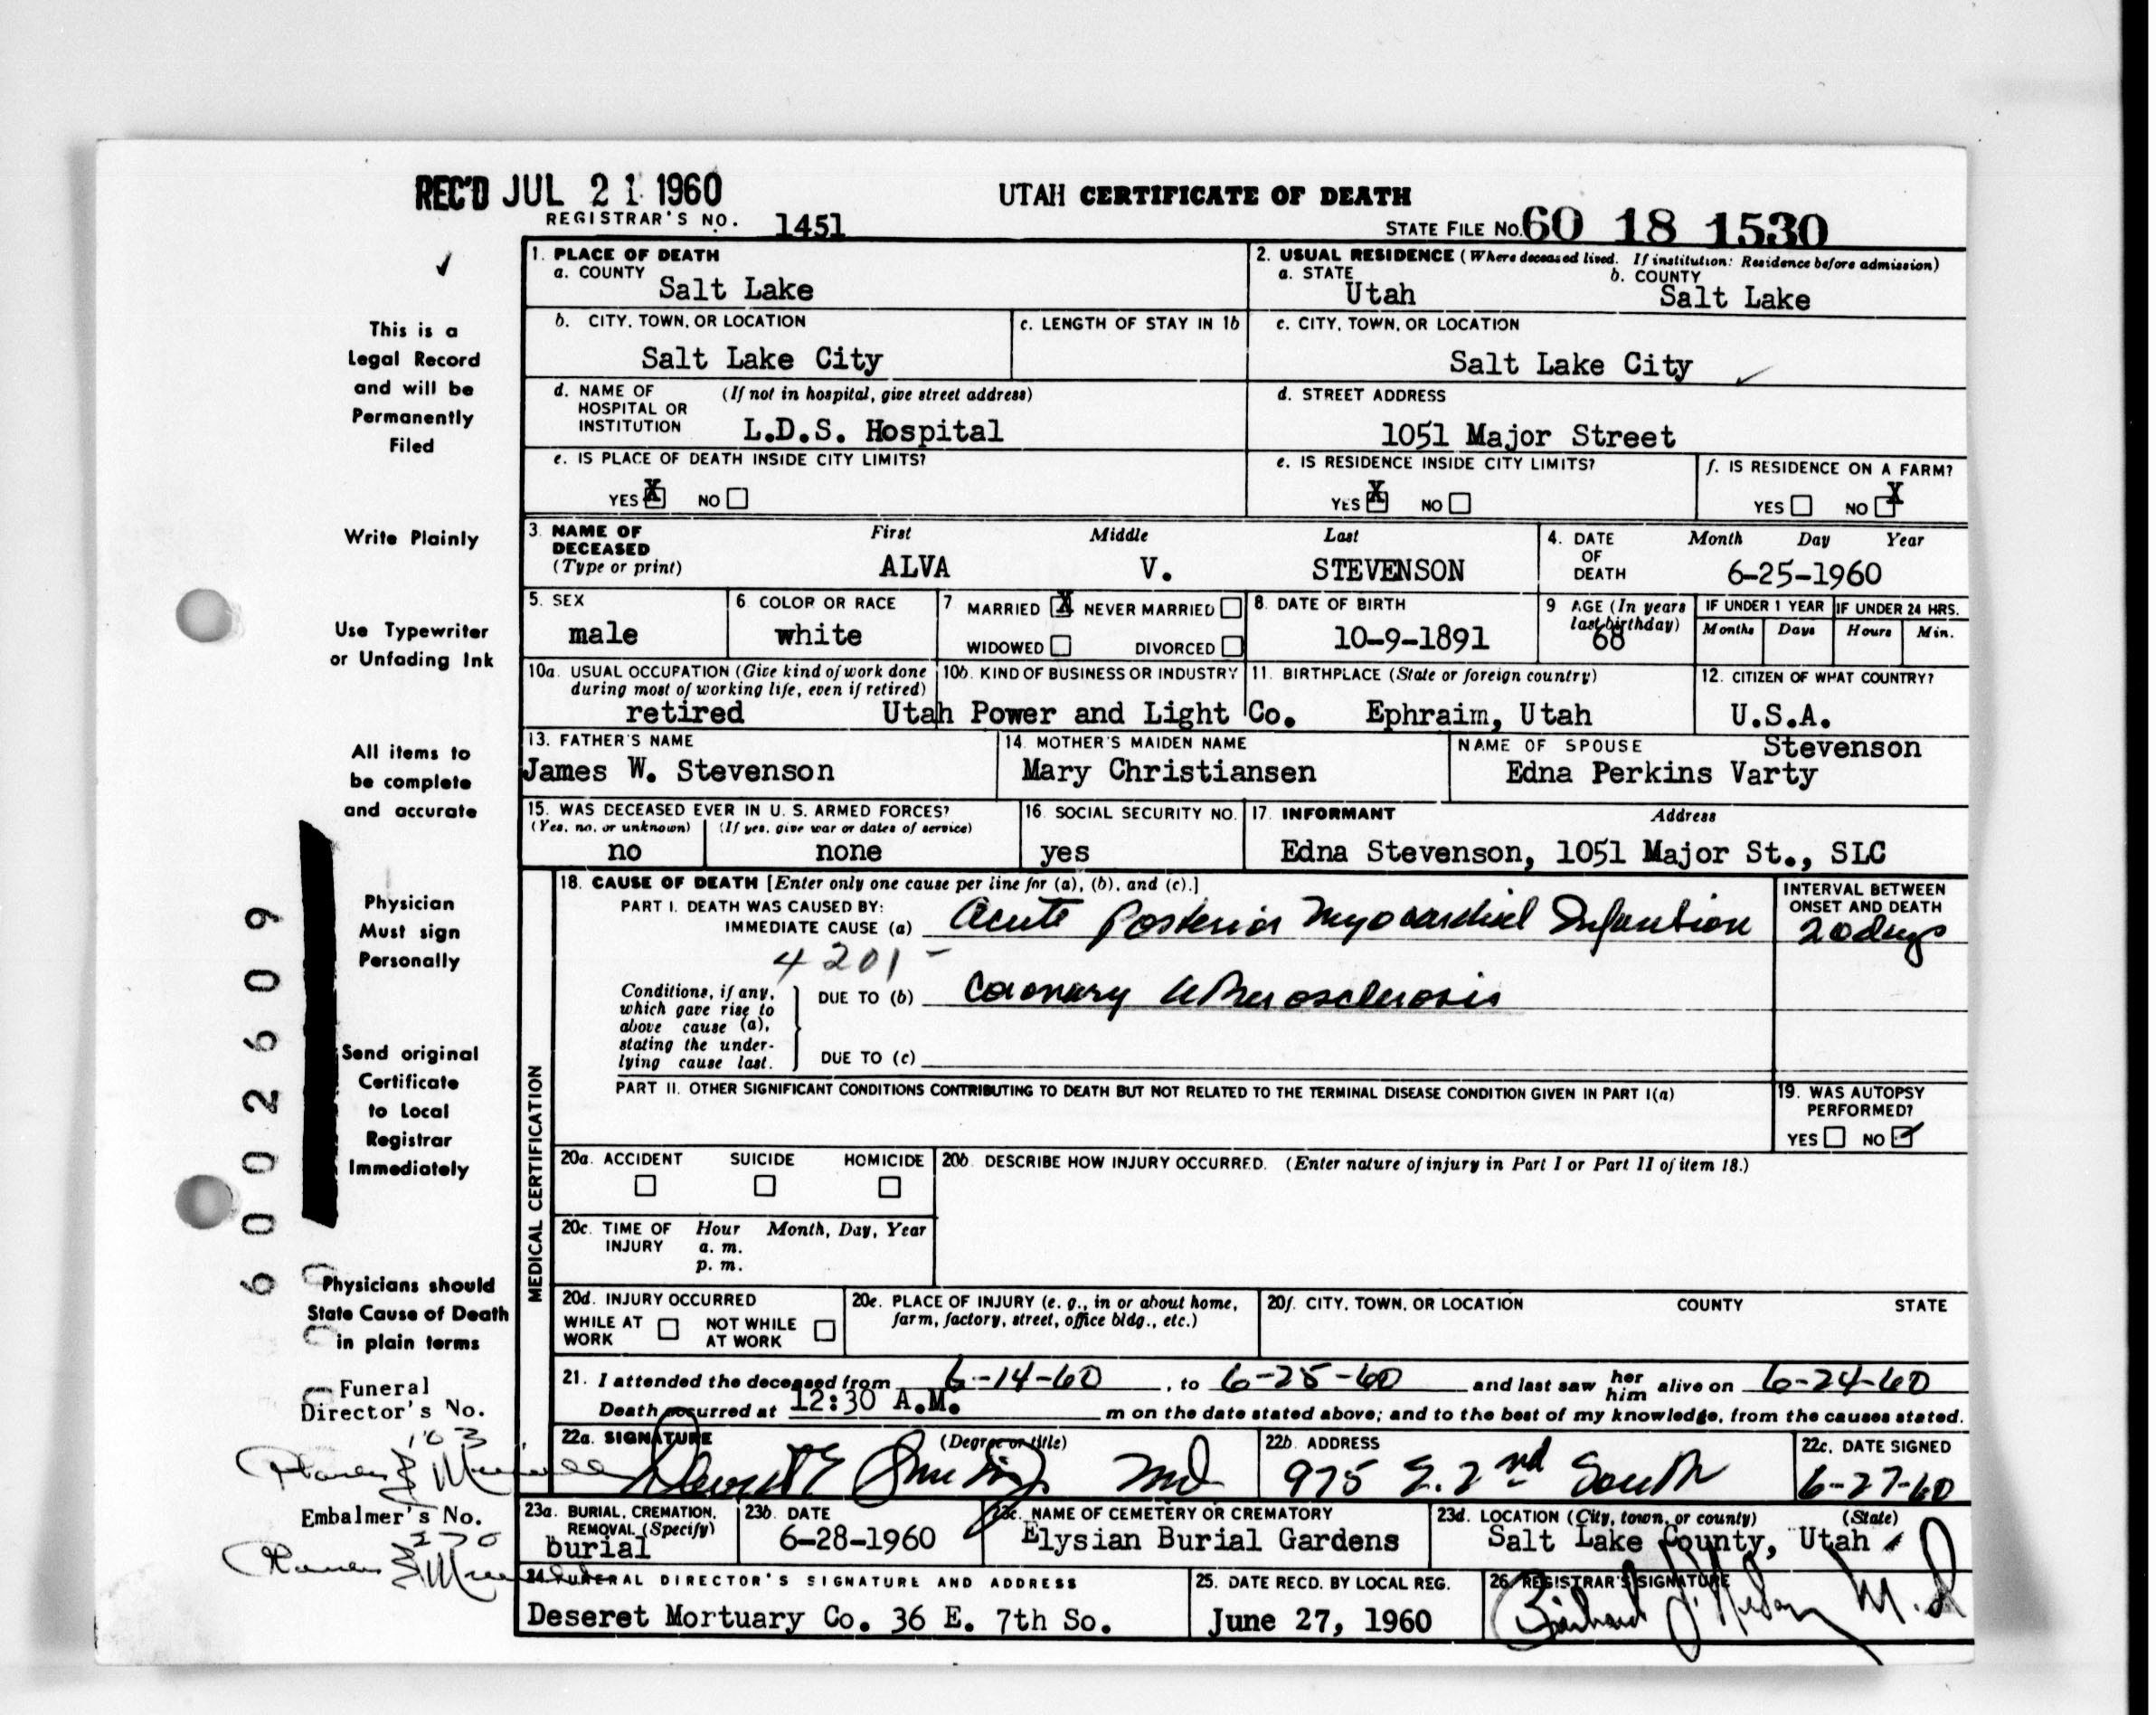 REC'D JUL 21 1960
UTAH CERTIFICATE OF DEATH
REGISTRAR'S NO. 1451
STATE FILE NO. 60 18 1530
This is a
Legal Record
and will be
Permanently
Filed
Write Plainly
Use Typewriter
or Unfading Ink
All items to
be complete
and accurate
Physician
Must sign
Personally
Send original
Certificate
to Local
Registrar
Immediately
Physicians should
State Cause of Death
in plain terms
Funeral
Director's No.
103
Embalmer's No.
270
6002609
1. PLACE OF DEATH
a. COUNTY
Salt Lake
2. USUAL RESIDENCE (Where deceased lived. If institution: Residence before admission)
a. STATE
Utah
b. COUNTY
Salt Lake
b. CITY, TOWN, OR LOCATION
Salt Lake City
c. LENGTH OF STAY IN 1b
c. CITY, TOWN, OR LOCATION
Salt Lake City
d. NAME OF (If not in hospital, give street address)
HOSPITAL OR
INSTITUTION
L.D.S. Hospital
d. STREET ADDRESS
1051 Major Street
e. IS PLACE OF DEATH INSIDE CITY LIMITS?
YES X NO
e. IS RESIDENCE INSIDE CITY LIMITS?
YES X NO
f. IS RESIDENCE ON A FARM?
YES NO X
3. NAME OF
DECEASED
(Type or print)
First Middle Last
ALVA V. STEVENSON
4. DATE
OF
DEATH
Month Day Year
6-25-1960
5. SEX
male
6. COLOR OR RACE
white
7 MARRIED X NEVER MARRIED
WIDOWED DIVORCED
8. DATE OF BIRTH
10-9-1891
9 AGE (In years
last birthday)
68
IF UNDER 1 YEAR
Months Days
IF UNDER 24 HRS.
Hours Min.
10a. USUAL OCCUPATION (Give kind of work done
during most of working life, even if retired)
retired
10b. KIND OF BUSINESS OR INDUSTRY
Utah Power and Light Co.
11. BIRTHPLACE (State or foreign country)
Ephraim, Utah
12. CITIZEN OF WHAT COUNTRY?
U.S.A.
13. FATHER'S NAME
James W. Stevenson
14. MOTHER'S MAIDEN NAME
Mary Christiansen
NAME OF SPOUSE Stevenson
Edna Perkins Varty
15. WAS DECEASED EVER IN U. S. ARMED FORCES?
(Yes, no, or unknown) (If yes, give war or dates of service)
no none
16. SOCIAL SECURITY NO.
yes
17. INFORMANT Address
Edna Stevenson, 1051 Major St., SLC
MEDICAL CERTIFICATION
18. CAUSE OF DEATH [Enter only one cause per line for (a), (b), and (c).]
PART I. DEATH WAS CAUSED BY:
IMMEDIATE CAUSE (a) Acute Posterior Myocardial Infarction
INTERVAL BETWEEN
ONSET AND DEATH
20 days
4201-
Conditions, if any,
which gave rise to
above cause (a),
stating the under-
lying cause last.
DUE TO (b) Coronary Atherosclerosis
DUE TO (c)
PART II. OTHER SIGNIFICANT CONDITIONS CONTRIBUTING TO DEATH BUT NOT RELATED TO THE TERMINAL DISEASE CONDITION GIVEN IN PART I(a)
19. WAS AUTOPSY
PERFORMED?
YES NO
20a. ACCIDENT SUICIDE HOMICIDE
20b. DESCRIBE HOW INJURY OCCURRED. (Enter nature of injury in Part I or Part II of item 18.)
20c. TIME OF INJURY
Hour Month, Day, Year
a. m.
p. m.
20d. INJURY OCCURRED
WHILE AT WORK
NOT WHILE AT WORK
20e. PLACE OF INJURY (e. g., in or about home,
farm, factory, street, office bldg., etc.)
20f. CITY, TOWN, OR LOCATION COUNTY STATE
21. I attended the deceased from 6-14-60, to 6-25-60 and last saw her him alive on 6-24-60
Death occurred at 12:30 A.M. m on the date stated above; and to the best of my knowledge, from the causes stated.
22a. SIGNATURE (Degree or title)
MD
22b. ADDRESS
975 E. 2nd South
22c. DATE SIGNED
6-27-60
23a. BURIAL, CREMATION,
REMOVAL (Specify)
burial
23b. DATE
6-28-1960
23c. NAME OF CEMETERY OR CREMATORY
Elysian Burial Gardens
23d. LOCATION (City, town, or county) (State)
Salt Lake County, Utah
24. FUNERAL DIRECTOR'S SIGNATURE AND ADDRESS
Deseret Mortuary Co. 36 E. 7th So.
25. DATE RECD. BY LOCAL REG.
June 27, 1960
26. REGISTRAR'S SIGNATURE
M.D